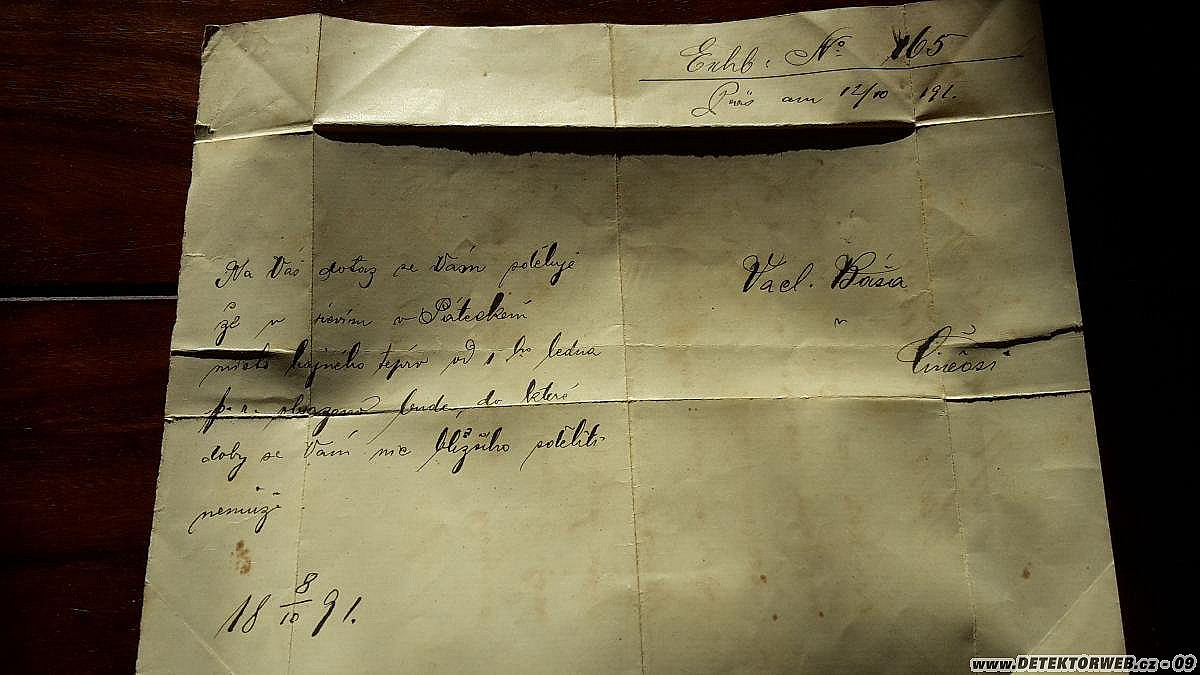 Exhb: No 165
Präs am 12/10 191.
Na Váš dotaz se Vám sděluje
Vacl. Báša
že v revíru v Páteckém
v
místo hajného teprv od 1 ho ledna
Vinčosi
p. r. obsazeno bude, do které
doby se Vám nic bližšího sděliti
nemůže
18 8/10 91.
www.DETEKTORWEB.cz - 09